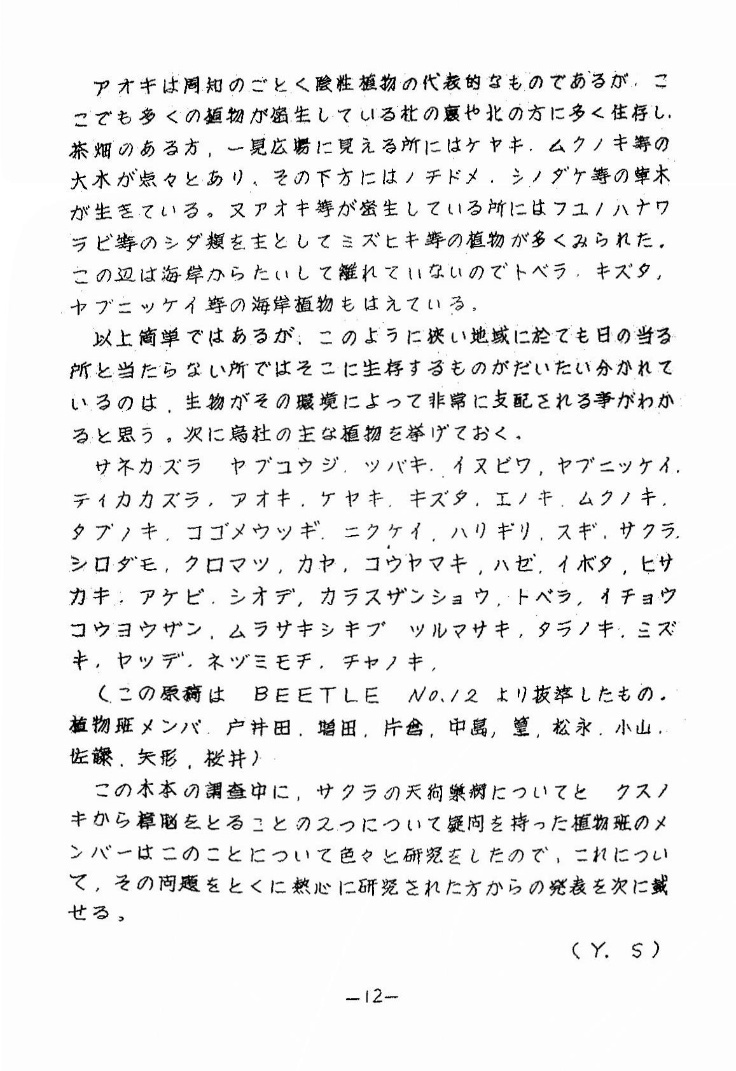 アオキは周知のごとく陰性植物の代表的なものであるが、こ
こでも多くの植物が密生している杜の裏や北の方に多く生存し、
茶畑のある方、一見広場に見える所にはケヤキ、ムクノキ等の
大木が点々とあり、その下方にはノチドメ、シノダケ等の草木
が生きている。又アオキ等が密生している所にはフユノハナワ
ラビ等のシダ類を主としてミズヒキ等の植物が多くみられた。
この辺は海岸からたいして離れていないのでトベラ、キズタ、
ヤブニッケイ等の海岸植物もはえている。
以上簡単ではあるが、このように狭い地域に於ても日の当る
所と当たらない所ではそこに生存するものがだいたい分かれて
いるのは、生物がその環境によって非常に支配される事がわか
ると思う。次に烏杜の主な植物を挙げておく。
サネカズラ ヤブコウジ、ツバキ、イヌビワ、ヤブニッケイ、
ティカカズラ、アオキ、ケヤキ、キズタ、エノキ、ムクノキ、
タブノキ、コゴメウツギ、ニクケイ、ハリギリ、スギ、サクラ、
シロダモ、クロマツ、カヤ、コウヤマキ、ハゼ、イボタ、ヒサ
カキ、アケビ、シオデ、カラスザンショウ、トベラ、イチョウ
コウヨウザン、ムラサキシキブ ツルマサキ、タラノキ、ミズ
キ、ヤツデ、ネヅミモチ、チャノキ、
(この原稿は BEETLE No.12 より抜萃したもの。
植物班メンバ 戸井田、増田、片倉、中島、篁、松永、小山、
佐藤、矢形、桜井)
この木本の調査中に、サクラの天狗巣病についてと クスノ
キから樟脳をとることの2つについて疑問を持った植物班のメ
ンバーはこのことについて色々と研究をしたので、これについ
て、その問題をとくに熱心に研究された方からの発表を次に載
せる。
(Y. S)
—12—